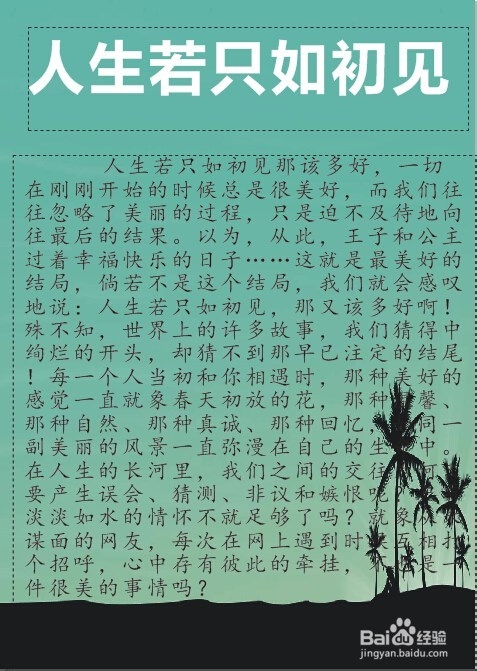 人生若只如初见
人生若只如初见那该多好，一切
在刚刚开始的时候总是很美好，而我们往
往忽略了美丽的过程，只是迫不及待地向
往最后的结果。以为，从此，王子和公主
过着幸福快乐的日子……这就是最美好的
结局，倘若不是这个结局，我们就会感叹
地说：人生若只如初见，那又该多好啊！
殊不知，世界上的许多故事，我们猜得中
绚烂的开头，却猜不到那早已注定的结尾
！每一个人当初和你相遇时，那种美好的
感觉一直就象春天初放的花，那种馨、
那种自然、那种真诚、那种回忆，同一
副美丽的风景一直弥漫在自己的生中。
在人生的长河里，我们之间的交往
要产生误会、猜测、非议和嫉恨呢
淡淡如水的情怀不就足够了吗？就象
谋面的网友，每次在网上遇到时互相打
个招呼，心中存有彼此的牵挂，是一
件很美的事情吗？
Baidu经验
jingyan.baidu.com